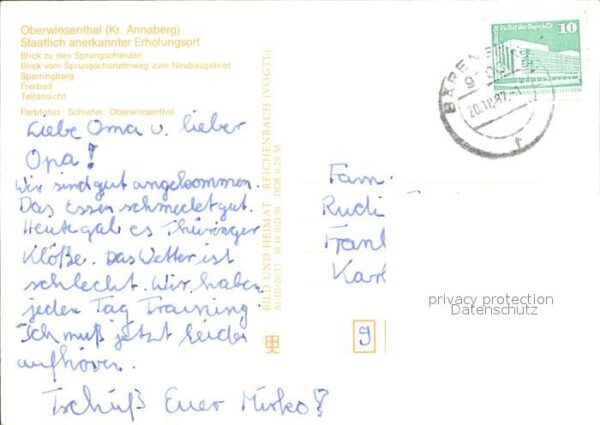 Oberwiesenthal (Kr. Annaberg)
Staatlich anerkannter Erholungsort
Blick zu den Sprungschanzen
Blick vom Sprungschanzenweg zum Neubaugebiet
Sparringberg
Freibad
Teilansicht
Farbfotos: Schiefer, Oberwiesenthal
Liebe Oma u. lieber
Opa!
Wir sind gut angekommen.
Das Essen schmeckt gut.
Heute gab es Thüringer
Klöße. Das Wetter ist
schlecht. Wir haben
jeden Tag Training
Ich muß jetzt leider
aufhören.
Tschüß Euer Mirko!
BILD UND HEIMAT REICHENBACH (VOGTL)
DDR 0,20 M
Palast der Republik
10
20.10.87
Fam.
Rudi
Frank
Karl
9
privacy protection
Datenschutz